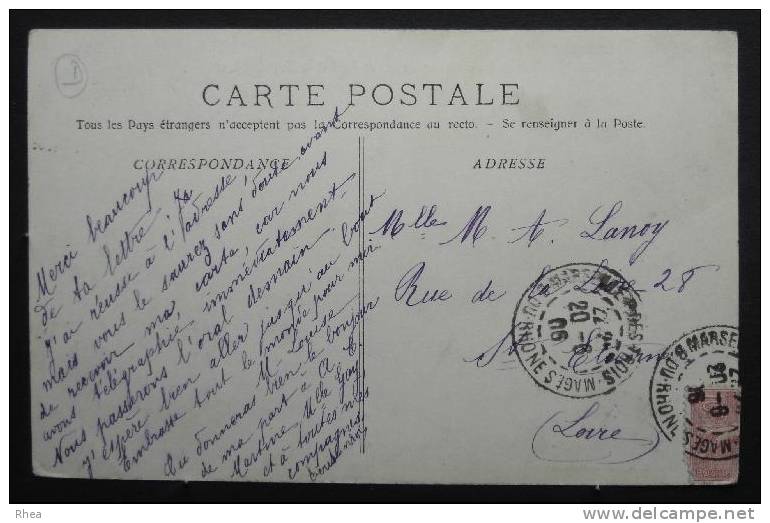 CARTE POSTALE
Tous les Pays étrangers n'acceptent pas la Correspondance au recto. - Se renseigner à la Poste.
CORRESPONDANCE
ADRESSE
Merci beaucoup
de ta lettre
j'ai réussie à l'adresse,
mais vous le saurez sans doute avant
de recevoir ma carte, car nous
avons télégraphié immédiatement.
Nous passerons l'oral demain.
j'espère bien aller jusqu'au bout
Embrasse tout le monde pour moi
M. Louise
Tu donneras bien le bonjour
de ma part à A. C.
Martine, Mlle Gay
et à toutes mes
compagnes
Mlle M. A. Lanoy
Rue de la 28
St Etienne
(Loire)
MARSEILLE
20 -6
06
B. DU-RHONE
MARSEI
20 -6
B. DU-RHONE
Rhea
delcampe.net